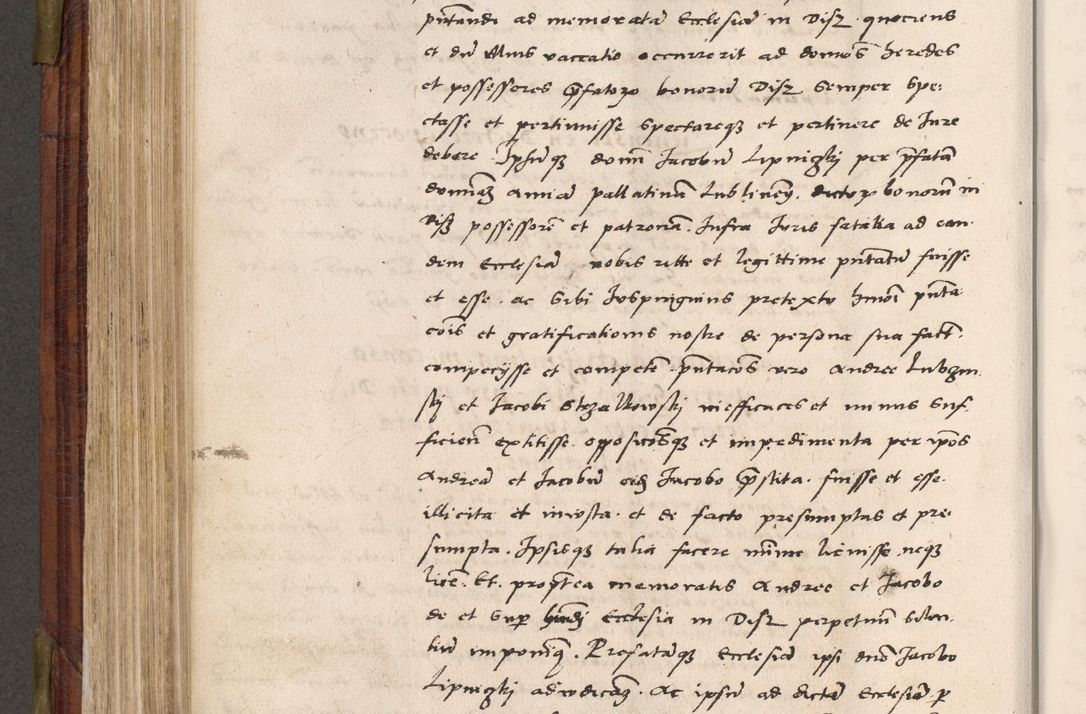 pntandi ad memorata Ecclesia in Disz quociens
et du illius vaccatio occurrerit ad domos heredes
et possessores pfatorʒ bonoru Disz semper spe:
ctasse et pertinuisse spectareqʒ et pertinere de Jure
debere Ipsuqʒ domi Jacobu Lipniczkj per pfata
domina Anna pallatina Lublinen. dictorʒ bonoru in
Disz possessore et patrona. Infra Juris fatalia ad ean
dem Ecclesia, nobis ritte et legittime pntatu fuisse
et esse. ac sibi Juspingnius pretextu hmoi pnta
cois et gratificationis nostre de persona sua fact.
competysse et compete. pntacos vero Andree Lubzin
skj et Jacobi Strzalkowskj inefficaces et minus suf
ficien extitisse. opposicosqʒ et impedimenta per ipos
Andrea et Jacobu eidʒ Jacobo pstita. fuisse et esse.
illicita et iniusta. et de facto presumptas et pre
sumpta. Ipsisqʒ talia facere minime licuisse neqʒ
lice. Et. proptea memoratis Andree et Jacobo
de et sup hmdj Ecclesia in Disz perpetuu silen
tiu imponiqʒ. Prefataqʒ Ecclesia ipsi dno Jacobo
Lipniczkj adiudicadʒ. Ac ipsu ad dicta Ecclesia p